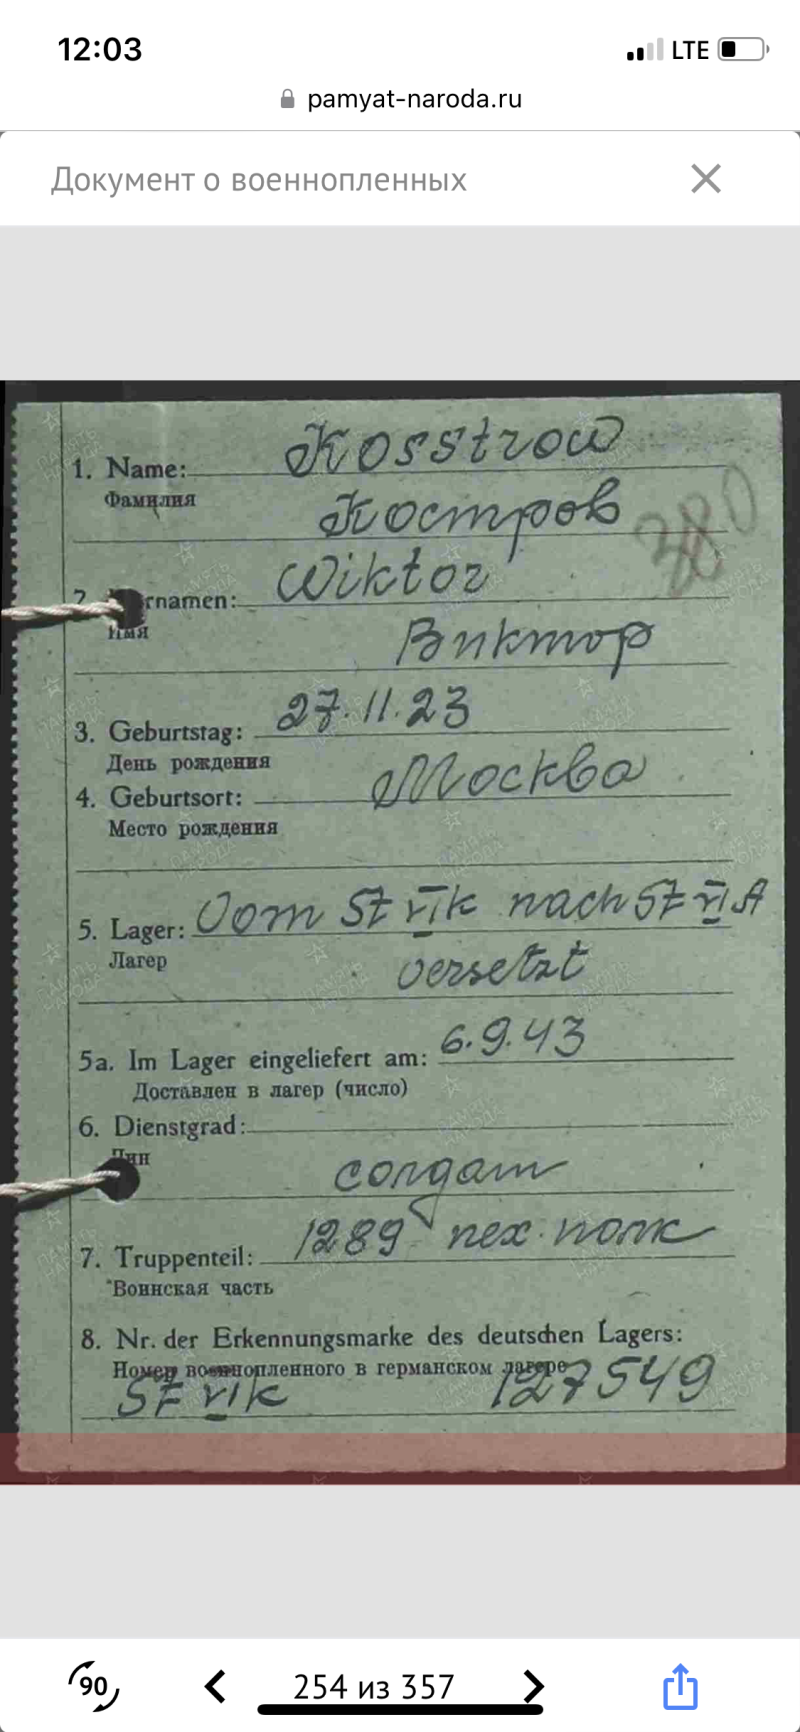 12:03
LTE
pamyat-naroda.ru
Документ о военнопленных
1. Name: Kosstrow
Фамилия
Костров
380
2. rnamen: Wiktor
Имя
Виктор
3. Geburtstag: 27.11.23
День рождения
4. Geburtsort: Москва
Место рождения
5. Lager: Vom St VI k nach St VI A
Лагерь
versetzt
5a. Im Lager eingeliefert am: 6.9.43
Доставлен в лагер (число)
6. Dienstgrad:
Чин
солдат
7. Truppenteil: 1289 пех. полк
Воинская часть
8. Nr. der Erkennungsmarke des deutschen Lagers:
Номер военнопленного в германском лагере
St VI k 127549
90
254 из 357